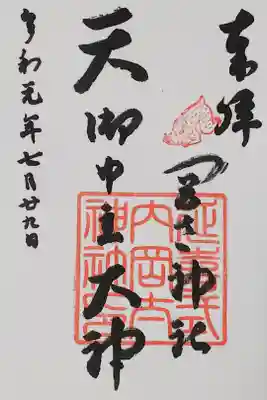 奉拝
岡太神社
天御中主大神
令和元年七月廿九日
延喜式
内岡太
神社